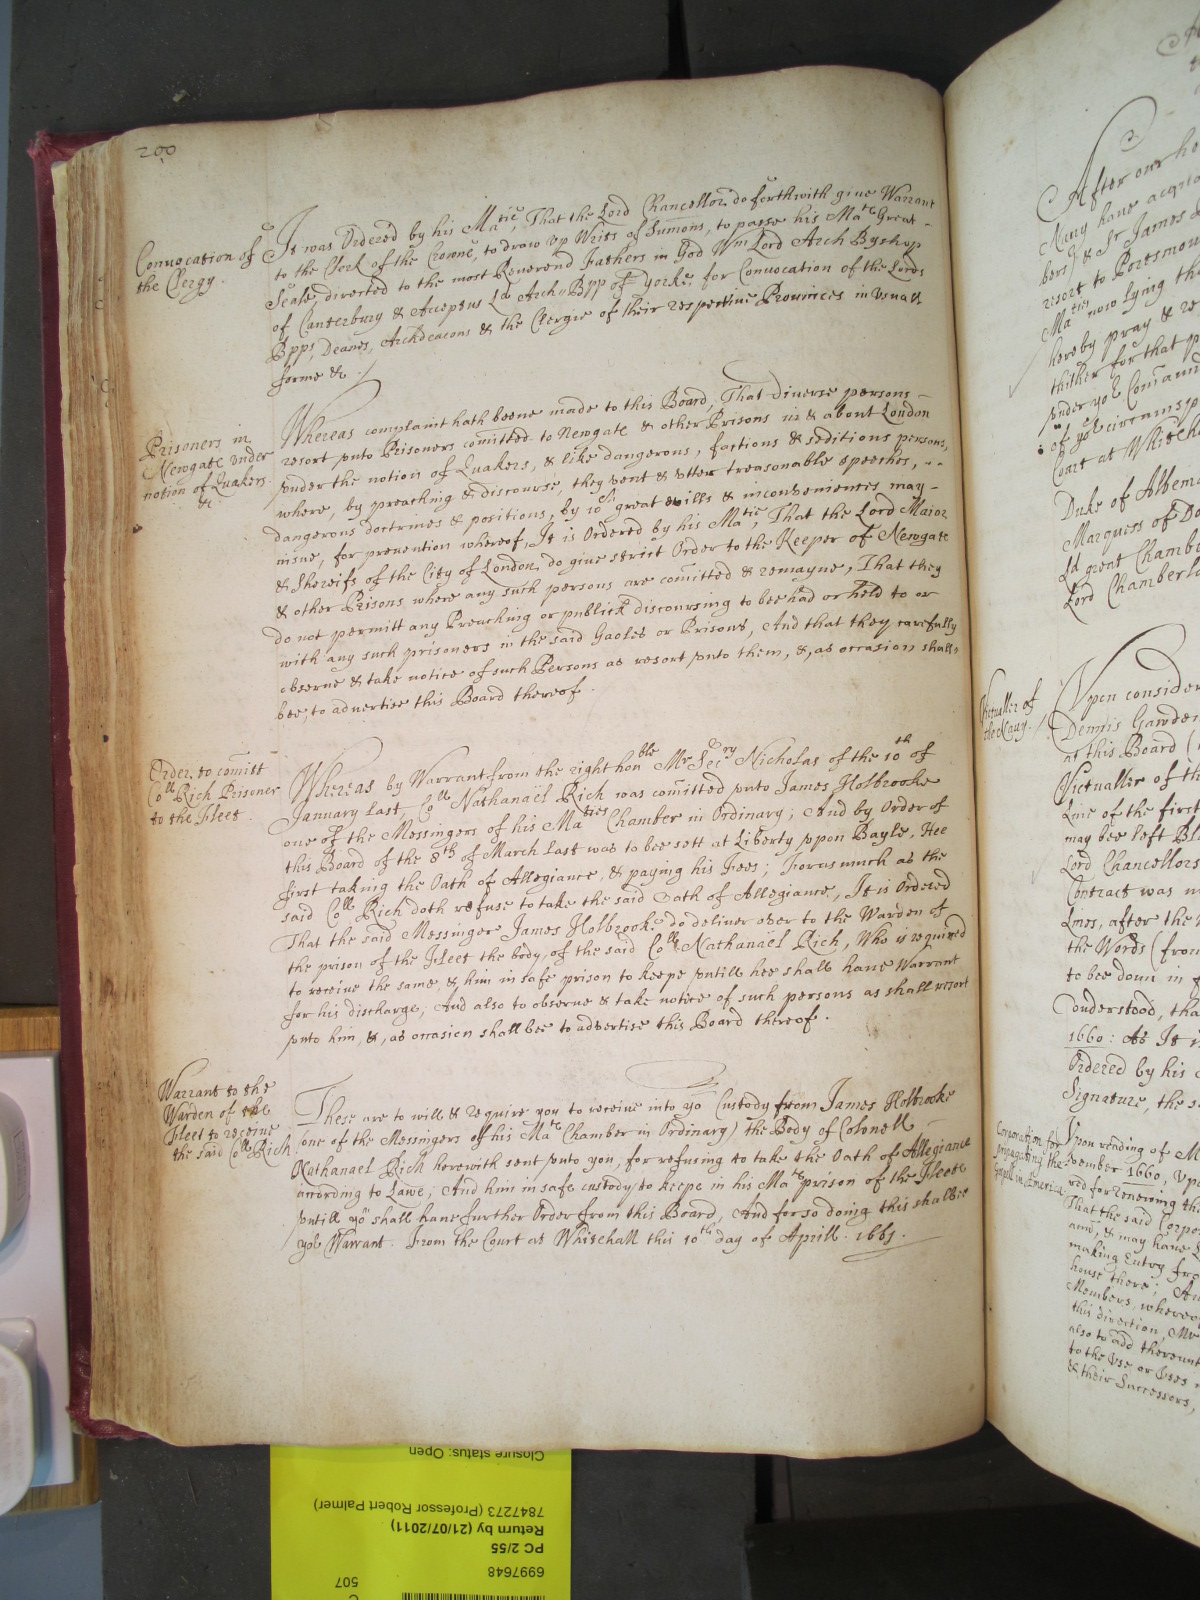 200
Convocation of
the Clergy.
It was Ordered by his Ma^tie, That the Lord Chancellor do forthwith give Warrant
to the Clerk of the Crowne, to draw vp Writs of Sumons, to passe his Ma^ts Great
Seale, directed to the most Reverend Fathers in God W^m Lord Arch Byshop
of Canterbury & Acceptus Ld Arch-Bpp of Yorke, for Convocation of the Lords
Bpps, Deanes, Archdeacons & the Clergie of their respective Provinces in vsuall
forme &c.
Prisoners in
Newgate vnder
notion of Quakers
&c
Whereas complaint hath beene made to this Board, That diverse persons
resort vnto Prisoners comitted to Newgate & other Prisons in & about London
vnder the notion of Quakers, & like dangerous, factious & seditious persons,
where, by preaching & discourse, they vent & vtter treasonable speeches,
dangerous doctrines & positions, by w^ch great evills & inconveniences may
insue, for prevention whereof, It is Ordered by his Ma^tie, That the Lord Maior
& Shereifs of the City of London, do give strict Order to the Keeper of Newgate
& other Prisons where any such persons are comitted & remayne, That they
do not permitt any Preaching or publick discoursing to bee had or held to or
with any such prisoners in the said Gaoles or Prisons, And that they carefully
observe & take notice of such Persons as resort vnto them, &, as occasion shall
bee, to advertise this Board thereof.
Order to comitt
Co^ll Rich Prisoner
to the Fleet.
Whereas by Warrant from the right hon^ble M^r Sec^ry Nicholas of the 10^th of
January last, Co^ll Nathanaël Rich was comitted vnto James Holbrooke
one of the Messingers of his Ma^ties Chamber in Ordinary; And by Order of
this Board of the 8^th of March last was to bee sett at Liberty vpon Bayle, Hee
first taking the Oath of Allegiance, & paying his Fees; Forasmuch as the
said Co^ll Rich doth refuse to take the said Oath of Allegiance, It is Ordered
That the said Messinger James Holbrooke do deliver over to the Warden of
the prison of the Fleet the body of the said Co^ll Nathanaël Rich, Who is required
to receive the same, & him in safe prison to keepe vntill hee shall have Warrant
for his discharge, And also to observe & take notice of such persons as shall resort
vnto him, &, as occasion shall bee to advertise this Board thereof.
Warrant to the
Warden of the
Fleet to receive
the said Co^ll Rich
These are to will & require you to receive into yo^r Custody from James Holbrooke
(one of the Messingers of his Ma^ts Chamber in Ordinary) the Body of Colonell
Nathanael Rich herewith sent vnto you, for refusing to take the Oath of Allegiance
according to Lawe; And him in safe custody to keepe in his Ma^ts prison of the Fleete
vntill yo^u shall have further Order from this Board, And for so doing this shalbee
yo^r Warrant. From the Court at Whitehall this 10^th day of Aprill. 1661.
After our he
Navy have acqua
bers) & S^r James
resort to Portsmou
Ma^ties now lying th
hereby pray & re
thither for that p
vnder yo^r Comann
of yo^r circumsp
Court at Whiteha
Duke of Albema
Marquess of Do
Ld great Chamb
Lord Chamberla
Victualler of
the Navy.
Vpon consider
Dennis Gawden
at this Board (
Victualler of th
Line of the first
may bee left Bl
Lord Chancellors
Contract was m
Lines, after the
the Words (from
to bee down in
vnderstood, tha
1660: As It
Ordered by his
Signature, the s
Corporation for
propagating the
Gospell in America.
Vpon reading of M
vember 1660, vp
red for renewing th
That the said Corpo
ami, & may have
making Entry fro
house there; An
Members, whereof
this direction, Mr
also to add thereunt
to the Vse or Vses
& their Successors,
Closure status: Open
7847273 (Professor Robert Palmer)
Return by (21/07/2011)
PC 2/55
6997648
507